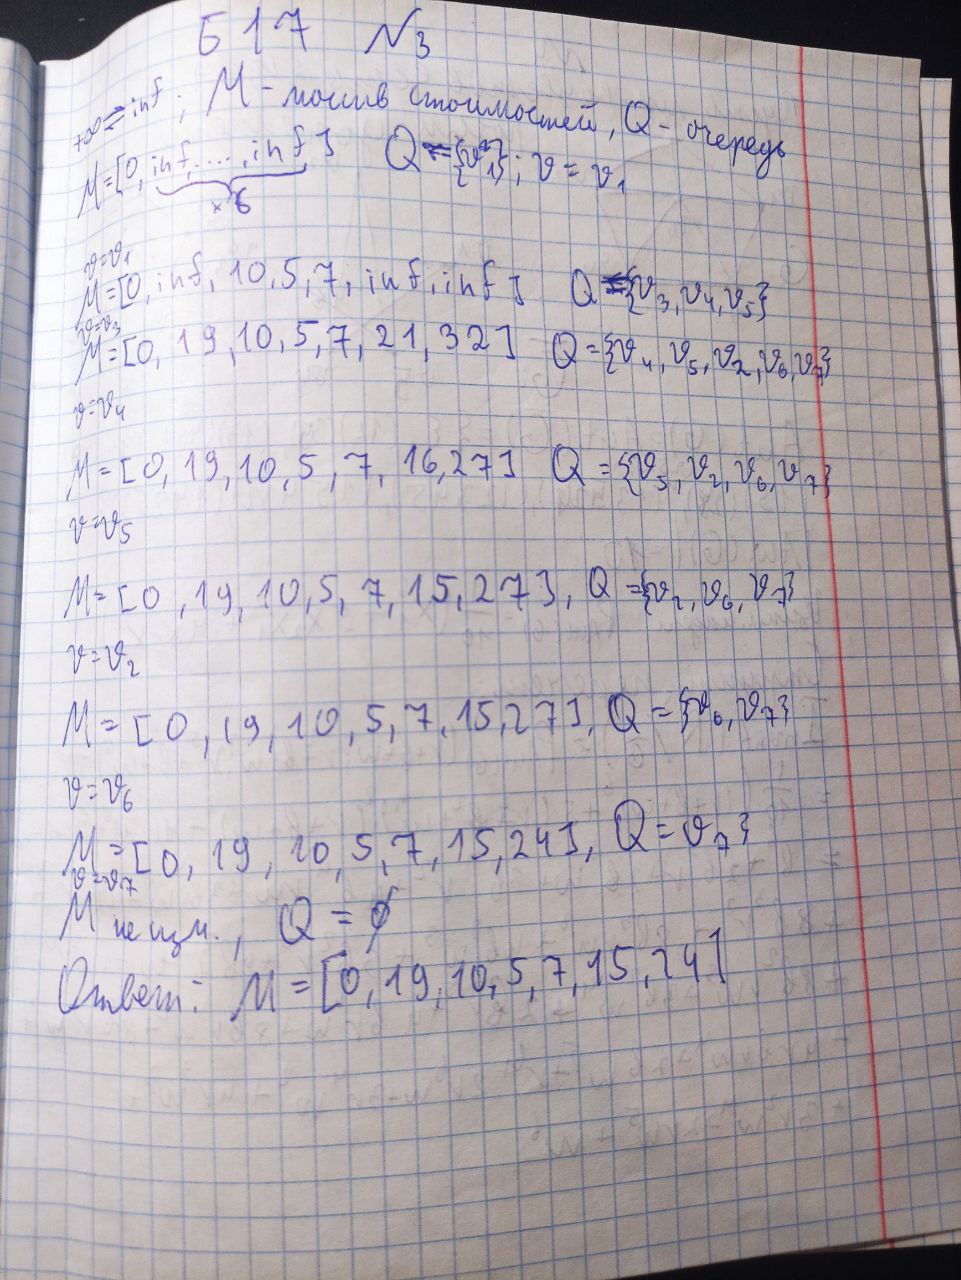 Б17 №3
+∞ = inf; M - массив стоимостей, Q - очередь
M = [0, inf, ..., inf] Q = {v1}; v = v1
×6
v=v1
M = [0, inf, 10, 5, 7, inf, inf] Q = {v3, v4, v5}
v=v3
M = [0, 19, 10, 5, 7, 21, 32] Q = {v4, v5, v2, v6, v7}
v=v4
M = [0, 19, 10, 5, 7, 16, 27] Q = {v5, v2, v6, v7}
v=v5
M = [0, 19, 10, 5, 7, 15, 27], Q = {v2, v6, v7}
v=v2
M = [0, 19, 10, 5, 7, 15, 27], Q = {v6, v7}
v=v6
M = [0, 19, 10, 5, 7, 15, 24], Q = v7}
v=v7
M не изм., Q = ∅
Ответ: M = [0, 19, 10, 5, 7, 15, 24]